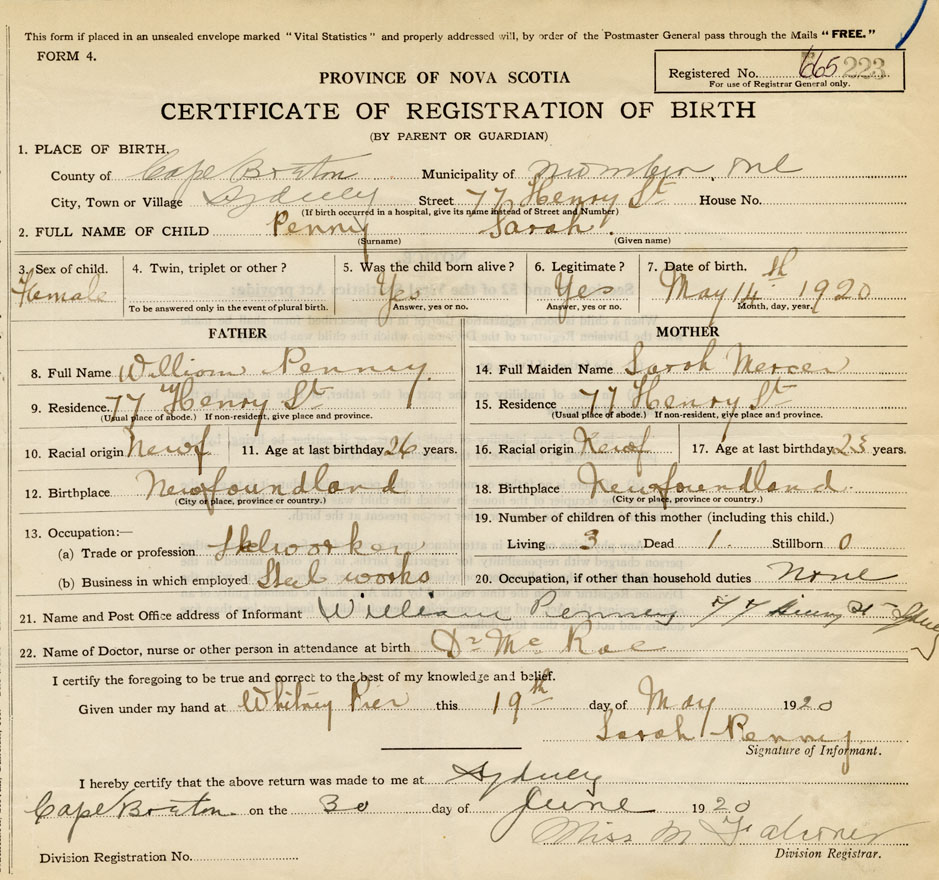 This form if placed in an unsealed envelope marked "Vital Statistics" and properly addressed will, by order of the Postmaster General pass through the Mails "FREE."
FORM 4.
Registered No. 665 223
For use of Registrar General only.
PROVINCE OF NOVA SCOTIA
CERTIFICATE OF REGISTRATION OF BIRTH
(BY PARENT OR GUARDIAN)
1. PLACE OF BIRTH.
County of Cape Breton Municipality of Number One
City, Town or Village Sydney Street 77 Henry St House No.
(If birth occurred in a hospital, give its name instead of Street and Number)
2. FULL NAME OF CHILD Penny Sarah
(Surname) (Given name)
3. Sex of child. 4. Twin, triplet or other? 5. Was the child born alive? 6. Legitimate? 7. Date of birth.
Female Yes Yes May 14th 1920
To be answered only in the event of plural birth. Answer, yes or no. Answer, yes or no. Month, day, year.
FATHER MOTHER
8. Full Name William Penny. 14. Full Maiden Name Sarah Mercer
9. Residence. 77 Henry St 15. Residence 77 Henry St
(Usual place of abode.) If non-resident, give place and province. (Usual place of abode.) If non-resident, give place and province.
10. Racial origin Newf 11. Age at last birthday 26 years. 16. Racial origin Newf 17. Age at last birthday 23 years.
12. Birthplace Newfoundland 18. Birthplace Newfoundland.
(City or place, province or country.) (City or place, province or country.)
13. Occupation:— 19. Number of children of this mother (including this child.)
(a) Trade or profession Living 3 Dead 1. Stillborn 0
(b) Business in which employed Steel works 20. Occupation, if other than household duties None
21. Name and Post Office address of Informant William Penney 77 Henry St Sydney
22. Name of Doctor, nurse or other person in attendance at birth Dr Mc Rae
I certify the foregoing to be true and correct to the best of my knowledge and belief.
Given under my hand at Whitney Pier this 19th day of May 1920
Sarah Penny
Signature of Informant.
I hereby certify that the above return was made to me at Sydney
Cape Breton on the 30 day of June 1920
Miss M Falconer
Division Registration No. Division Registrar.